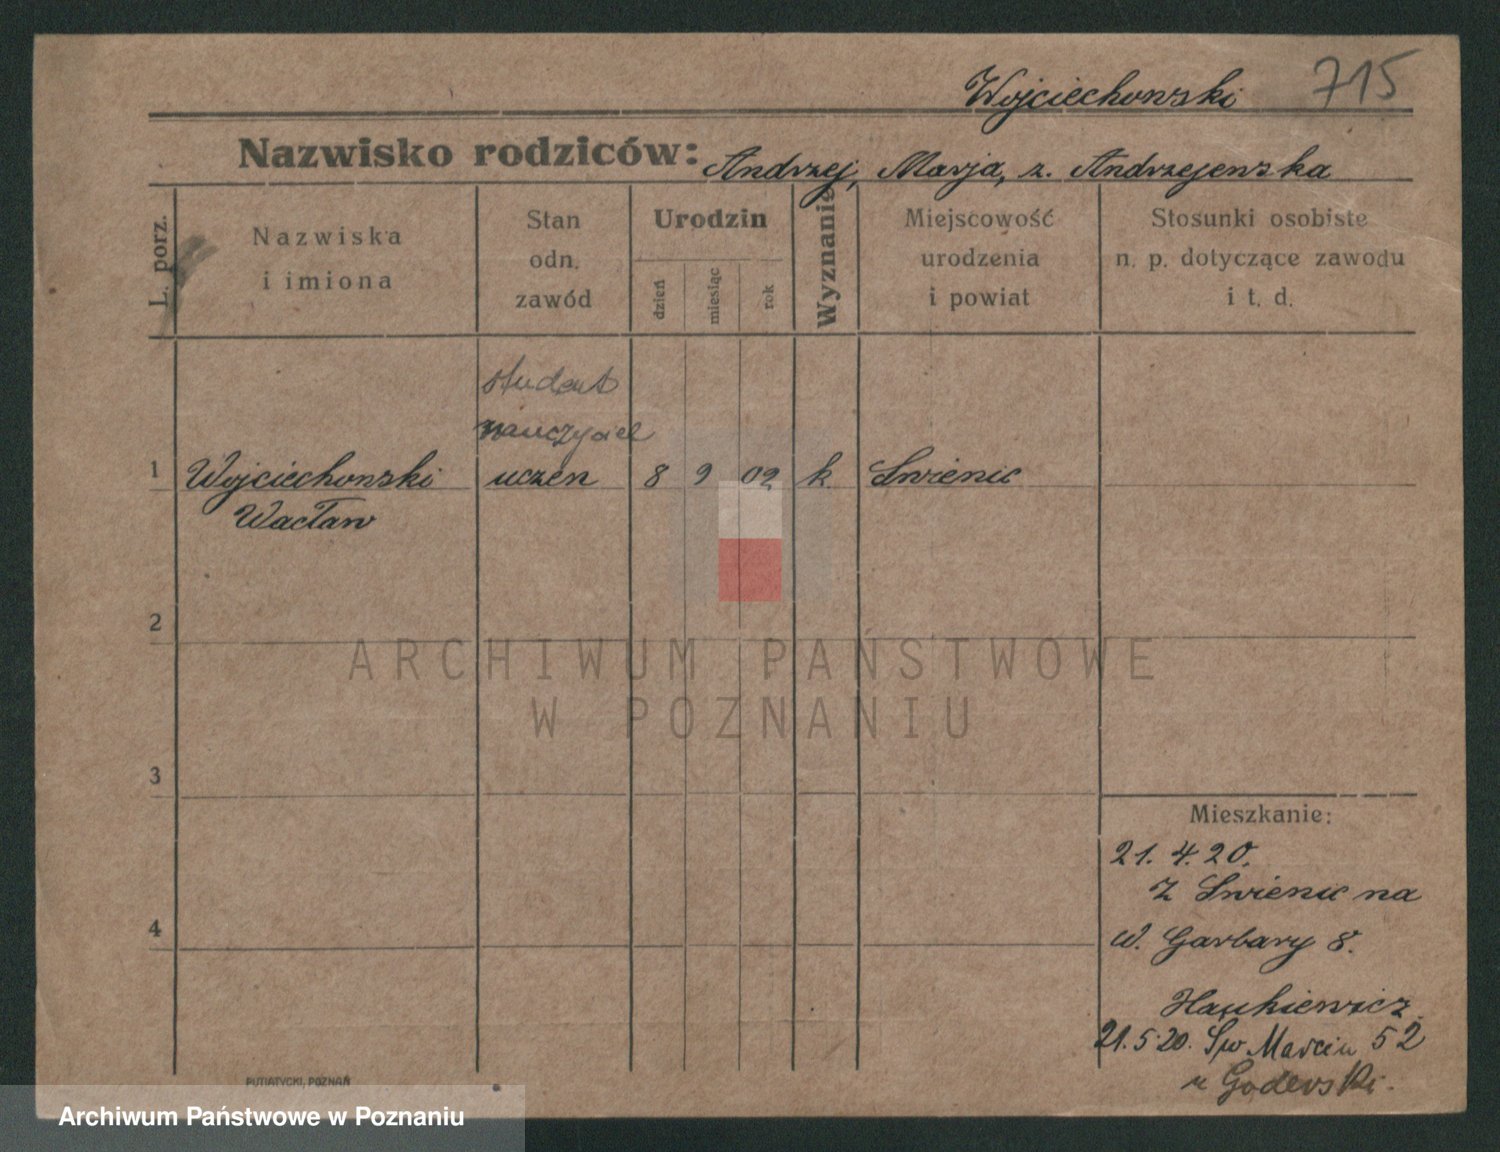 Wojciechowski 715
Nazwisko rodziców: Andrzej, Marja, z. Andrzejewska
L. porz.
Nazwiska
i imiona
Stan
odn.
zawód
Urodzin
dzień
miesiąc
rok
Wyznanie
Miejscowość
urodzenia
i powiat
Stosunki osobiste
n. p. dotyczące zawodu
i t. d.
student
nauczyciel
1 Wojciechowski uczen 8 9 02 k.
Wacław
2
ARCHIWUM PAŃSTWOWE
W POZNANIU
3
Mieszkanie:
21. 4. 20.
Z na
W. Garbary 8.
4
21.5.20. Sw Marcin 52
PUTIATYCKI, POZNAŃ
Archiwum Państwowe w Poznaniu